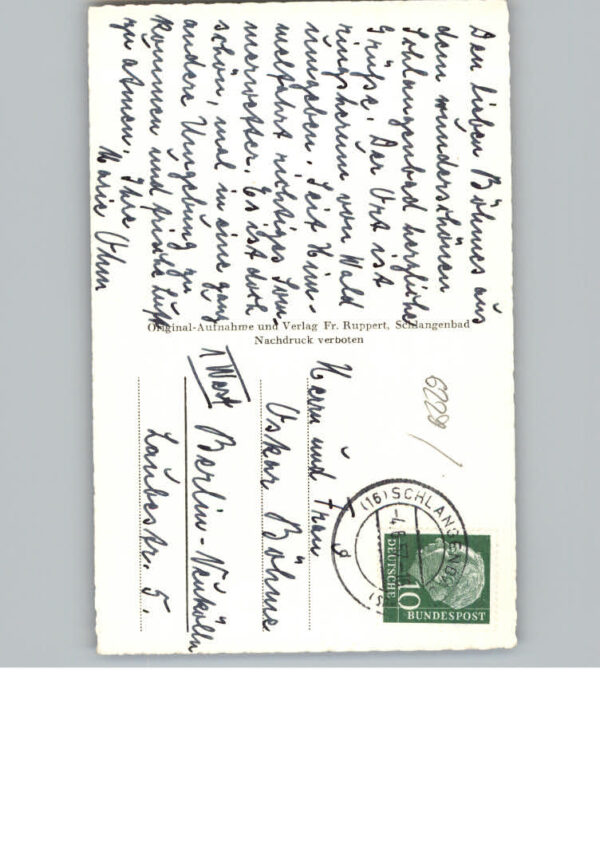 Den lieben Böhmes aus
dem wunderschönen
Schlangenbad herzliche
Grüße. Der Ort ist
ringsherum von Wald
umgeben. Seit Him-
melfahrt richtiges Som-
merwetter. Es ist doch
schön, mal in eine ganz
andere Umgebung zu
kommen und frische Luft
zu atmen. Ihre
Marie Ohm
Original-Aufnahme und Verlag Fr. Ruppert, Schlangenbad
Nachdruck verboten
6229/
(16) SCHLANGENBAD
DEUTSCHE
BUNDESPOST
10
Herrn und Frau
Oskar Böhme
1 West Berlin-Neukölln
Laubestr. 5.